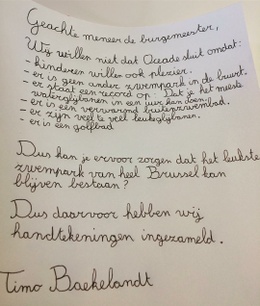 Geachte meneer de burgemeester,
Wij willen niet dat Oceade sluit omdat:
- kinderen willen ook plezier.
- er is geen ander zwempark in de buurt.
- er staat een record op: Dat je het meeste
waterglijbanen in een uur kan doen.
- er is een verwarmd buitenzwembad.
- er zijn veel te veel leuke glijbanen.
- er is een golfbad
Dus kan je ervoor zorgen dat het leukste
zwempark van heel Brussel kan
blijven bestaan?
Dus daarvoor hebben wij
handtekeningen ingezameld.
Timo Baekelandt